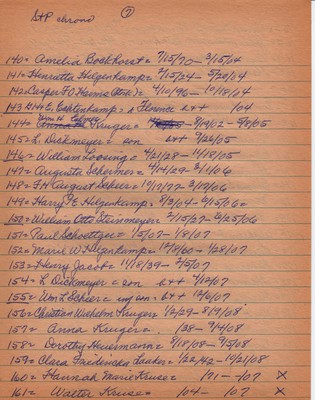 StP chrono ⑦
140 = Amelia Bockhorst = 7/15/70 - 3/15/04
141 = Henrietta Helgenkamp = 2/15/24 - 5/20/04
142 = Casper F O Harms = 4/10/96 - 10/18/04
143 = E. Espkinkamp = Florence b & + 104
144 = Wm H. Kruger = 8/19/02 - 5/8/05
145 = L. Dickmeyer = son b & + 9/26/05
146 = William Loesing = 4/21/28 - 11/18/05
147 = Augusta Schermer = 4/14/29 - 3/1/06
148 = F H August Scheer = 1/17/77 - 3/19/06
149 = Harry E. Helgenkamp = 8/3/04 - 6/15/06 =
150 = William Otto Steinmeyer = 2/15/27 - 3/25/06
151 = Paul Schoettger = 15/07 - 1/8/07
152 = Marie W Helgenkamp = 12/8/60 - 1/28/07
153 = Henry Jacobs = 11/18/39 - 2/5/07
154 = L Dickmeyer = son = b + 4/12/07
155 = Wm L Scheer = son = b + + 12/6/07
156 = Christian Wilhelm Kruger 12/29 - 8/19/08
157 = Anna Kruger = 138 - 7/4/08
158 = Dorothy Heuermann = 8/18/08 - 9/5/08
159 = Clara Laaker = 1/22/42 - 10/21/08
160 = Hannah Marie Kruse = 171 - 107 X
161 = Walter Kruse = 104 - 107 X